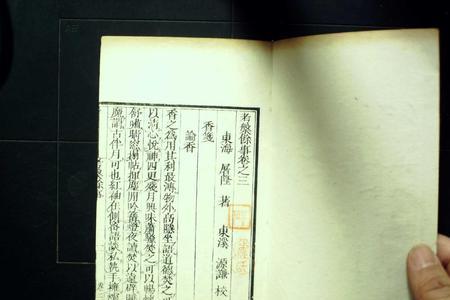 考槃餘事卷之三
東海 屠隆 著 東溪 源謙 校
香箋
論香
香之為用其利最溥物外高隱坐語道德焚之可
以清心悅神四更殘月興味蕭騷焚之可以暢懷
舒嘯晴窓搨帖揮塵閒吟篝燈夜讀焚以遠辟睡
魔謂古伴月可也紅袖在側密語談私執手擁爐